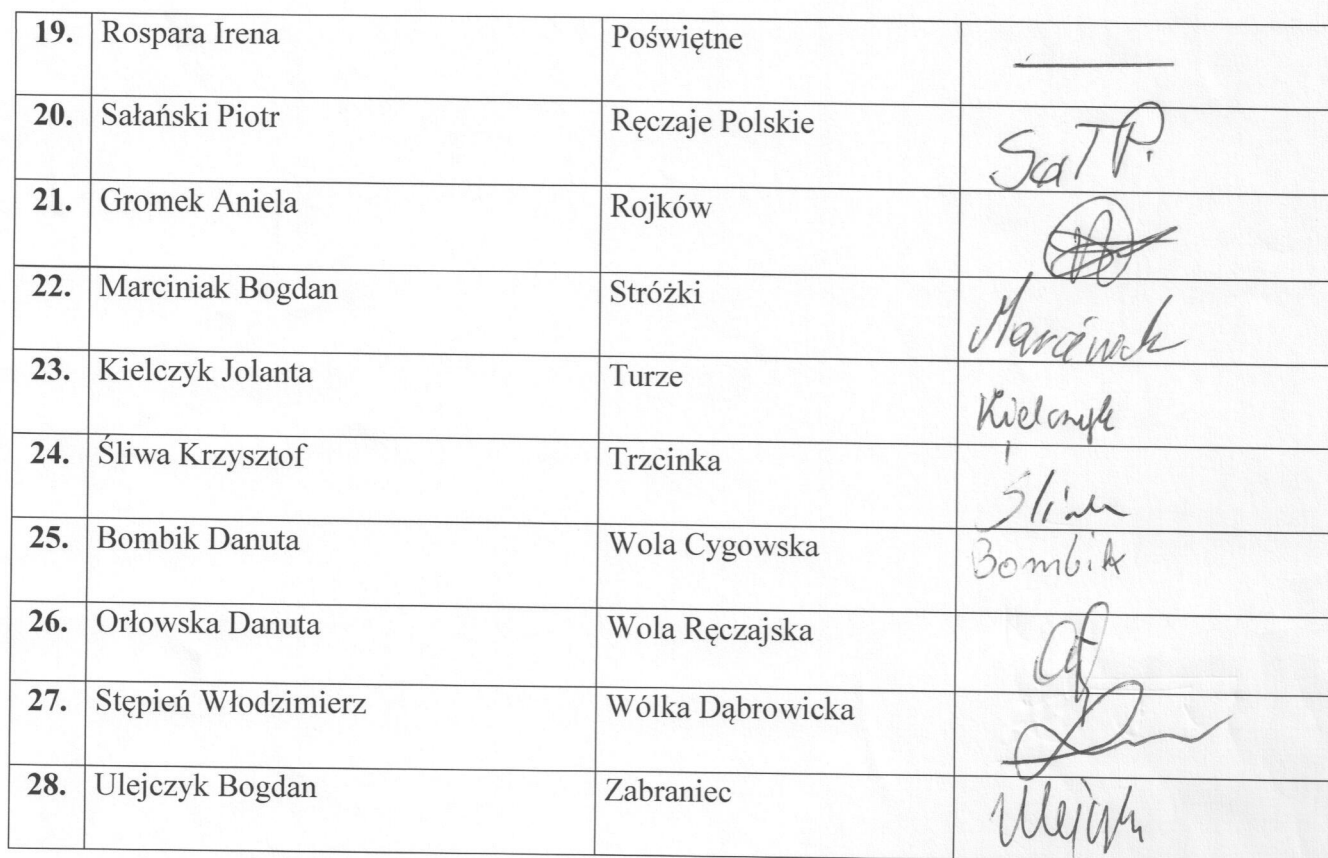 19. Rospara Irena Poświętne
20. Sałański Piotr Ręczaje Polskie
21. Gromek Aniela Rojków
22. Marciniak Bogdan Stróżki Marciniak
23. Kielczyk Jolanta Turze Kielczyk
24. Śliwa Krzysztof Trzcinka Śliwa
25. Bombik Danuta Wola Cygowska Bombik
26. Orłowska Danuta Wola Ręczajska
27. Stępień Włodzimierz Wólka Dąbrowicka
28. Ulejczyk Bogdan Zabraniec Ulejczyk